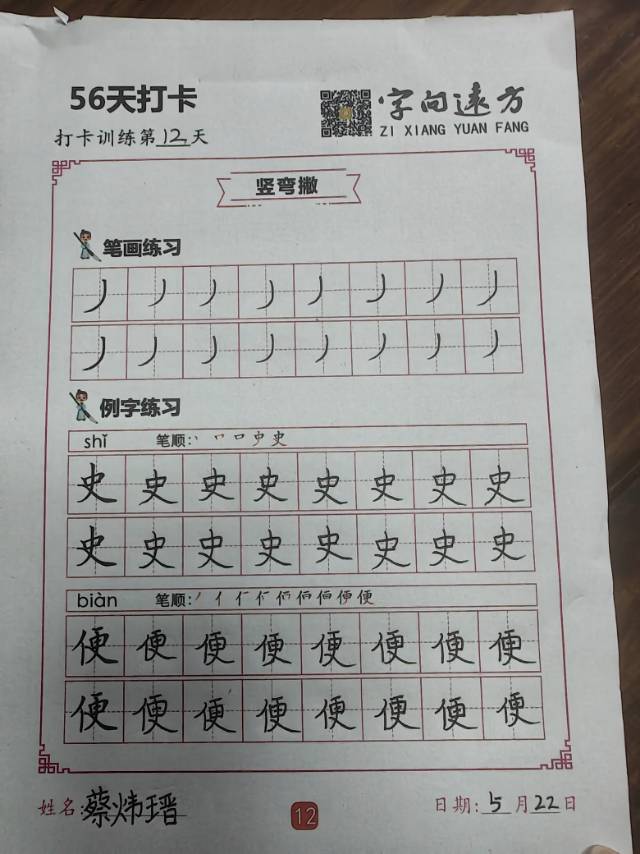 56天打卡
字向远方
ZI XIANG YUAN FANG
打卡训练第12天
竖弯撇
笔画练习
丿 丿 丿 丿 丿 丿 丿 丿
丿 丿 丿 丿 丿 丿 丿 丿
例字练习
shǐ 笔顺:
史 史 史 史 史 史 史 史
史 史 史 史 史 史 史 史
biàn 笔顺:
便 便 便 便 便 便 便 便
便 便 便 便 便 便 便 便
姓名:蔡炜瑨
12
日期:5月22日